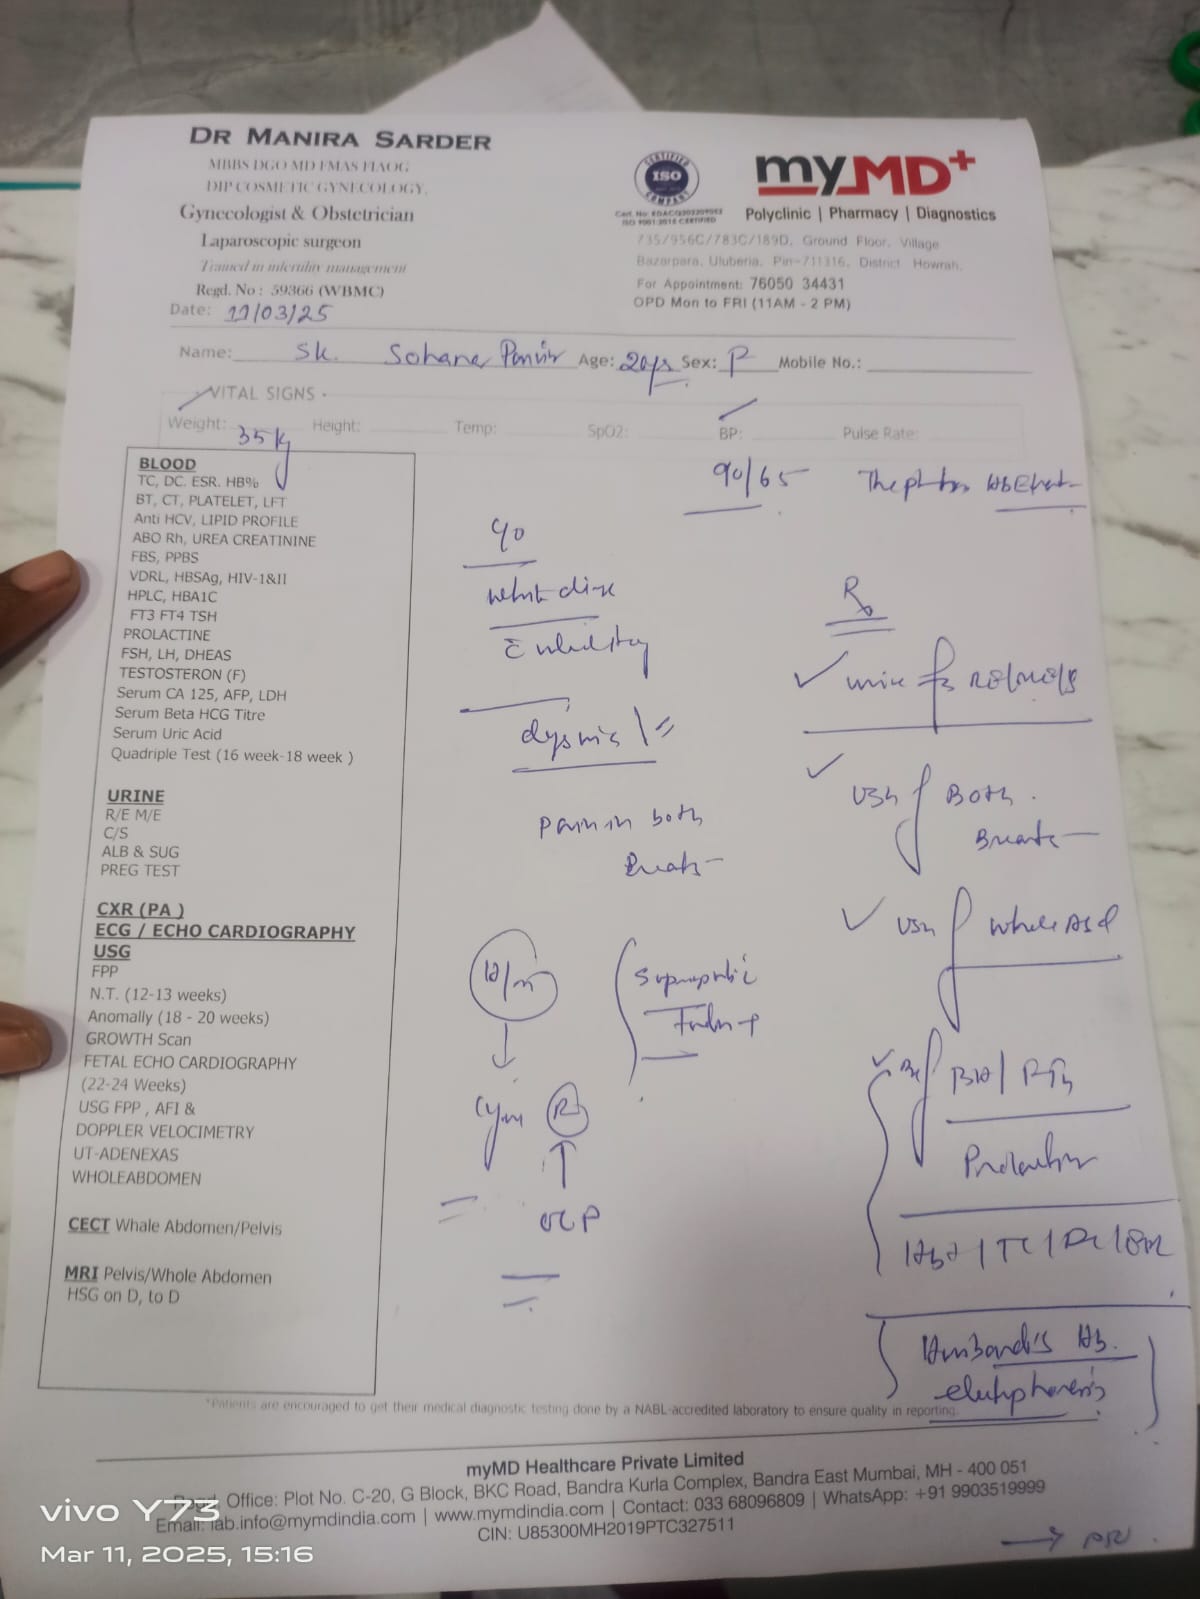 DR MANIRA SARDER
MBBS DGO MD FMAS FIAOG
DIP COSMETIC GYNECOLOGY,
Gynecologist & Obstetrician
Laparoscopic surgeon
Trained in infertility management
Regd. No : 59366 (WBMC)
Date: 11/03/25
CERTIFIED
ISO
COMPANY
ISO 9001:2015 CERTIFIED
myMD+
Polyclinic | Pharmacy | Diagnostics
735/956C/783C/189D, Ground Floor, Village
Bazarpara, Uluberia, Pin-711316, District Howrah,
For Appointment: 76050 34431
OPD Mon to FRI (11AM - 2 PM)
Name: Sk. Sohana Age: 20yrs Sex: F Mobile No.:
VITAL SIGNS
Weight: 35kg Height: Temp: SpO2: BP: Pulse Rate:
90/65
BLOOD
TC, DC. ESR. HB%
BT, CT, PLATELET, LFT
Anti HCV, LIPID PROFILE
ABO Rh, UREA CREATININE
FBS, PPBS
VDRL, HBSAg, HIV-1&II
HPLC, HBA1C
FT3 FT4 TSH
PROLACTINE
FSH, LH, DHEAS
TESTOSTERON (F)
Serum CA 125, AFP, LDH
Serum Beta HCG Titre
Serum Uric Acid
Quadriple Test (16 week-18 week )
URINE
R/E M/E
C/S
ALB & SUG
PREG TEST
CXR (PA )
ECG / ECHO CARDIOGRAPHY
USG
FPP
N.T. (12-13 weeks)
Anomally (18 - 20 weeks)
GROWTH Scan
FETAL ECHO CARDIOGRAPHY
(22-24 Weeks)
USG FPP , AFI &
DOPPLER VELOCIMETRY
UT-ADENEXAS
WHOLEABDOMEN
CECT Whale Abdomen/Pelvis
MRI Pelvis/Whole Abdomen
HSG on D, to D
white disc
Pain in both
Breasts
Suprapubic
OCP
Rx
USG Both
Breasts
USG whole Abd
Prolactin
Husband's Hb.
*Patients are encouraged to get their medical diagnostic testing done by a NABL-accredited laboratory to ensure quality in reporting.
myMD Healthcare Private Limited
Office: Plot No. C-20, G Block, BKC Road, Bandra Kurla Complex, Bandra East Mumbai, MH - 400 051
Email: lab.info@mymdindia.com | www.mymdindia.com | Contact: 033 68096809 | WhatsApp: +91 9903519999
CIN: U85300MH2019PTC327511
vivo Y73
Mar 11, 2025, 15:16